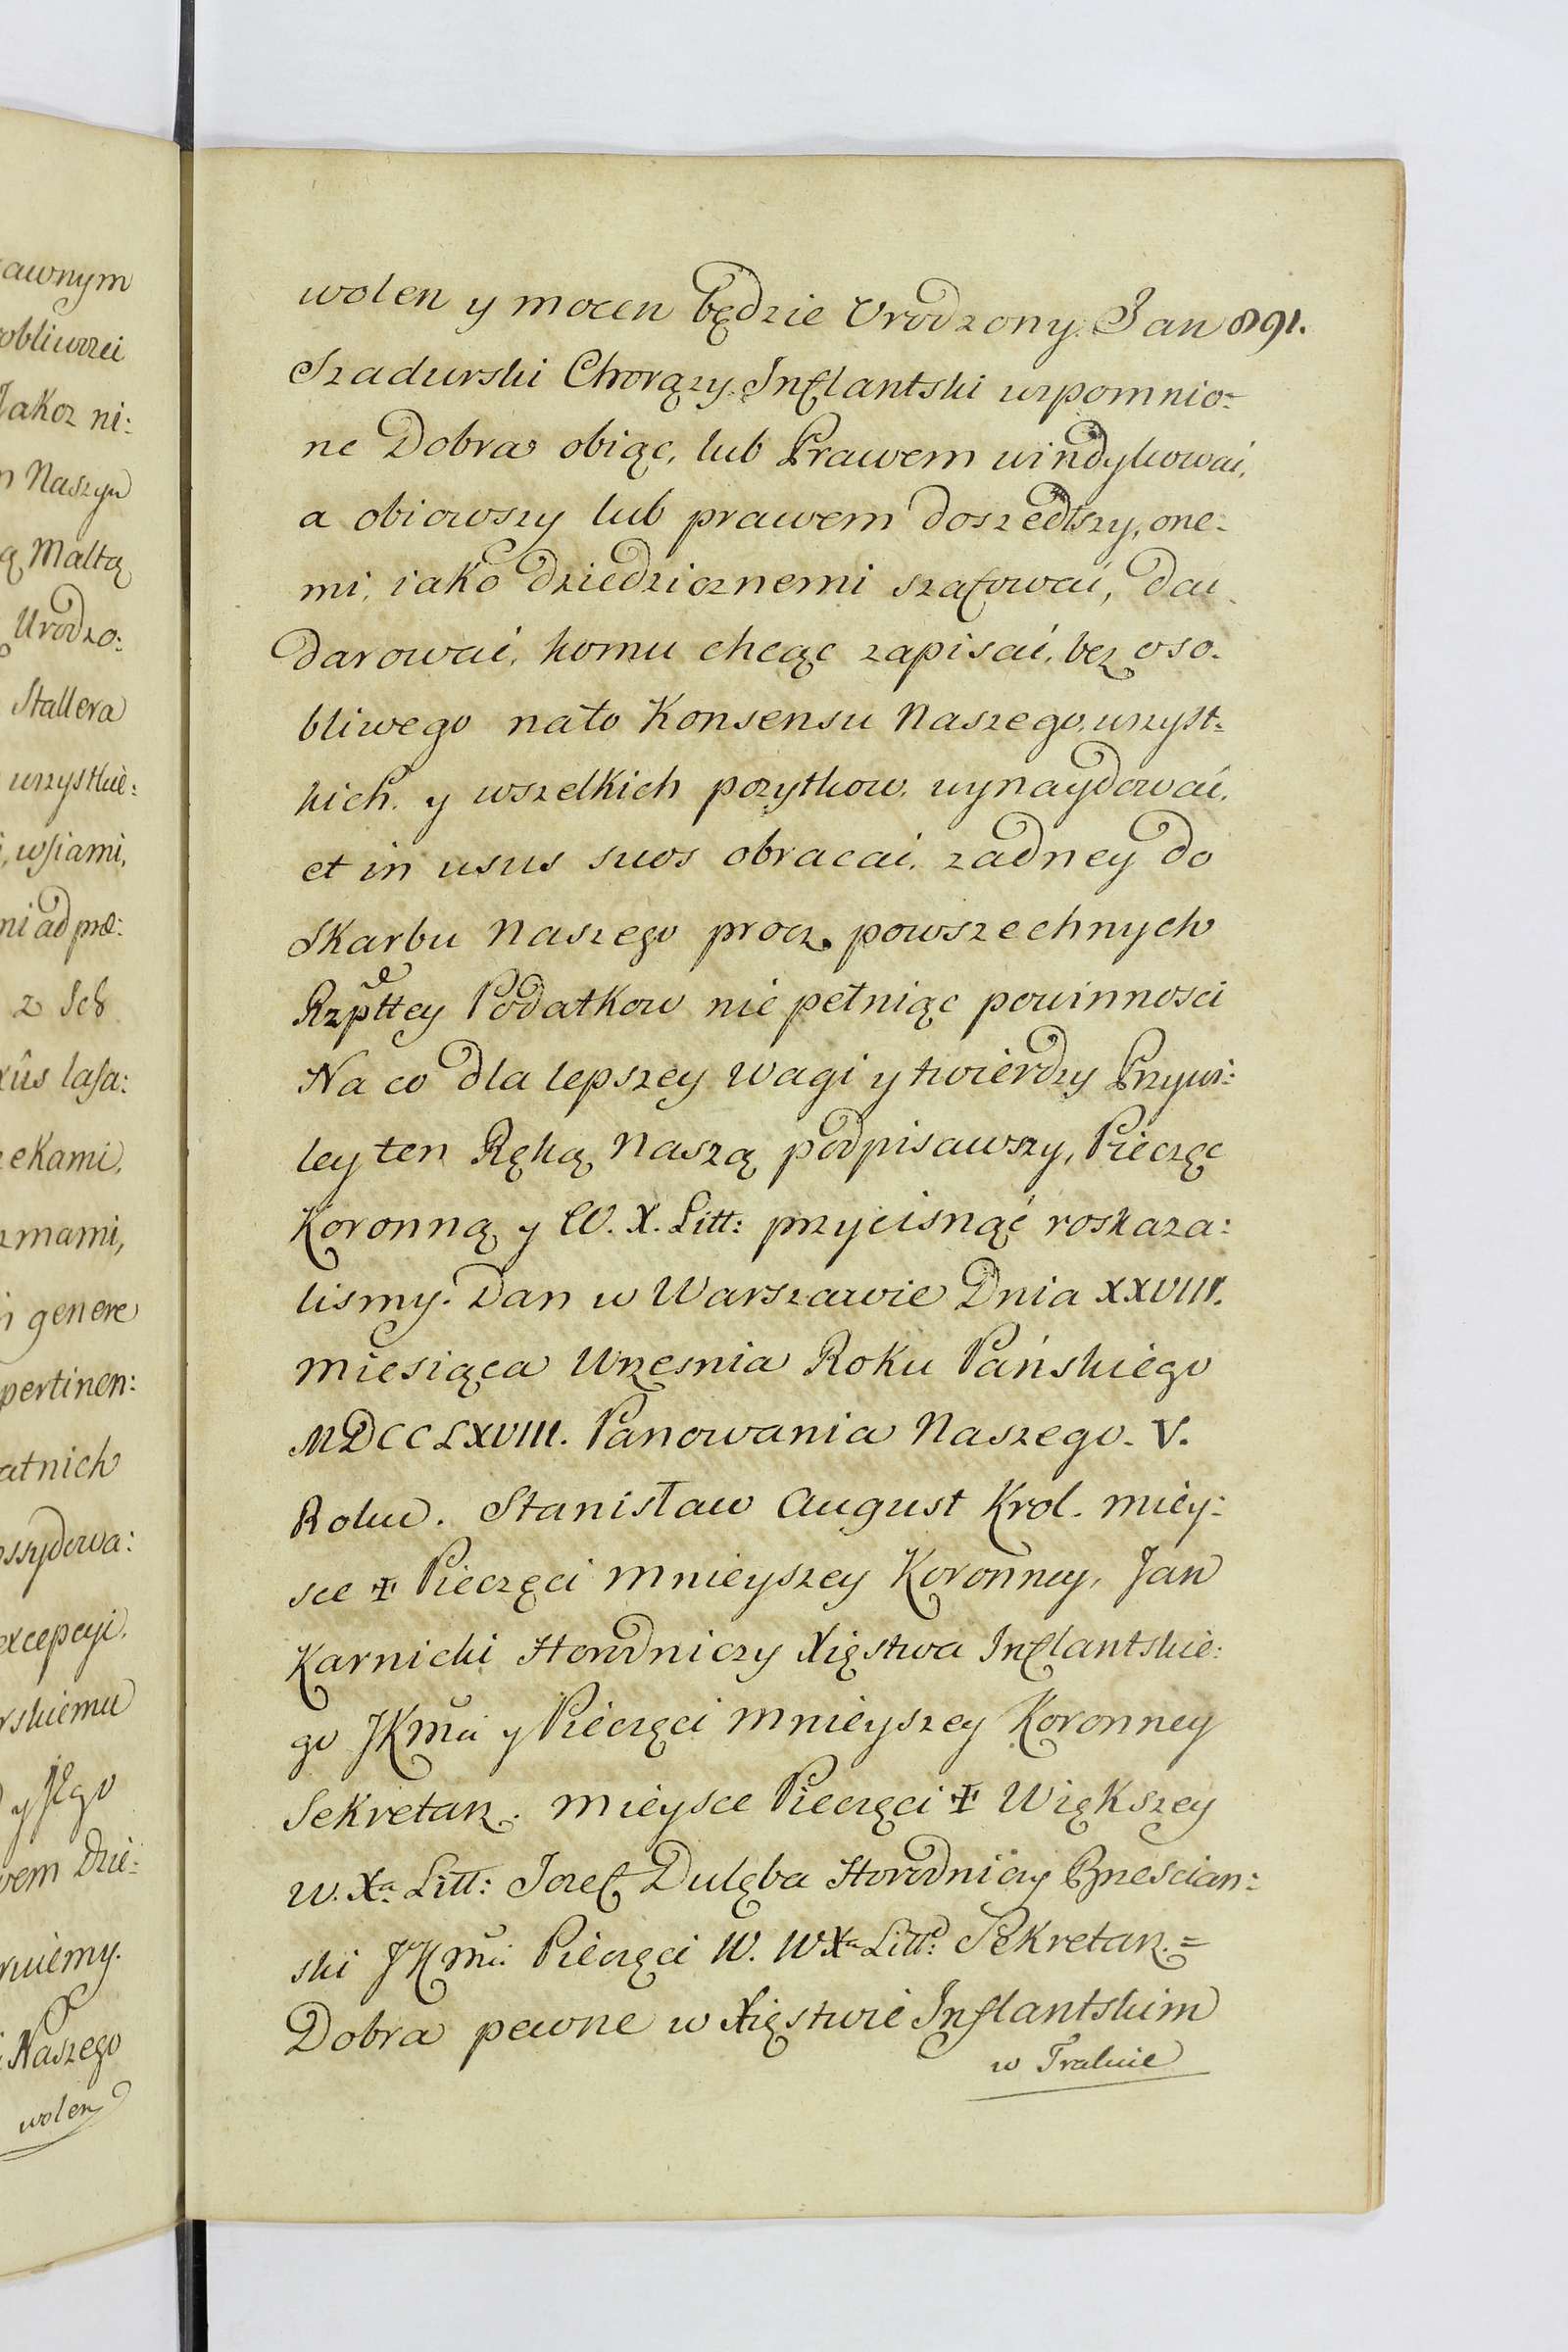 awnym
obliwzei
Jakoz ni:
m Naszym
ą Maltą
Urodzo:
Stallera
wszystkie:
i, wsiami,
mi ad præ:
z Sch
xûs lasa:
zekami,
zmami,
in genere
pertinen:
atnich
ossydowa:
excepcyi.
rskiemu
y Jego
wem Dzie:
ruiemy.
i Naszego
wolen
wolen y mocen będzie Urodzony Jan 891.
Szadurski Chorązy Inflantski wspomnio-
ne Dobra obiąc, lub Prawem windykowai,
a obiowszy lub prawem doszedłszy, one-
mi, iako dziedzicznemi szafowai, dai
darowai, komu chcąc zapisai, bez oso-
bliwego nato Konsensu Naszego, wszyst-
kich y wszelkich pozytkow wynaydowai,
et in usus suos obracai, zadney do
Skarbu Naszego procz powszechnych
Rzpttey Podatkow nie pełniąc powinnosci
Na co dla lepszey wagi y twierdzy Przywi:
ley ten Ręką Naszą podpisawszy, Pieczęc
Koronną y W. X. Litt: przycisnąć roskaza:
lismy. Dan w Warszawie Dnia XXVIII.
Miesiąca Wrzesnia Roku Pańskiego
MDCCLXVIII. Panowania Naszego. V.
Roku. Stanisław August Krol. miey:
sce ✠ Pieczęci Mnieyszey Koronney, Jan
Karnicki Horodniczy Xięstwa Inflantskie:
go JKmci y Pieczęci Mnieyszey Koronney
Sekretarz. Mieysce Pieczęci ✠ Większey
W. Xa. Litt: Jozef Dulęba Horodniczy Brzescian:
ski JKmci Pieczęci W. W Xa Litt: Sekretarz. =
Dobra pewne w Xięstwie Inflantskim
w Trakcie